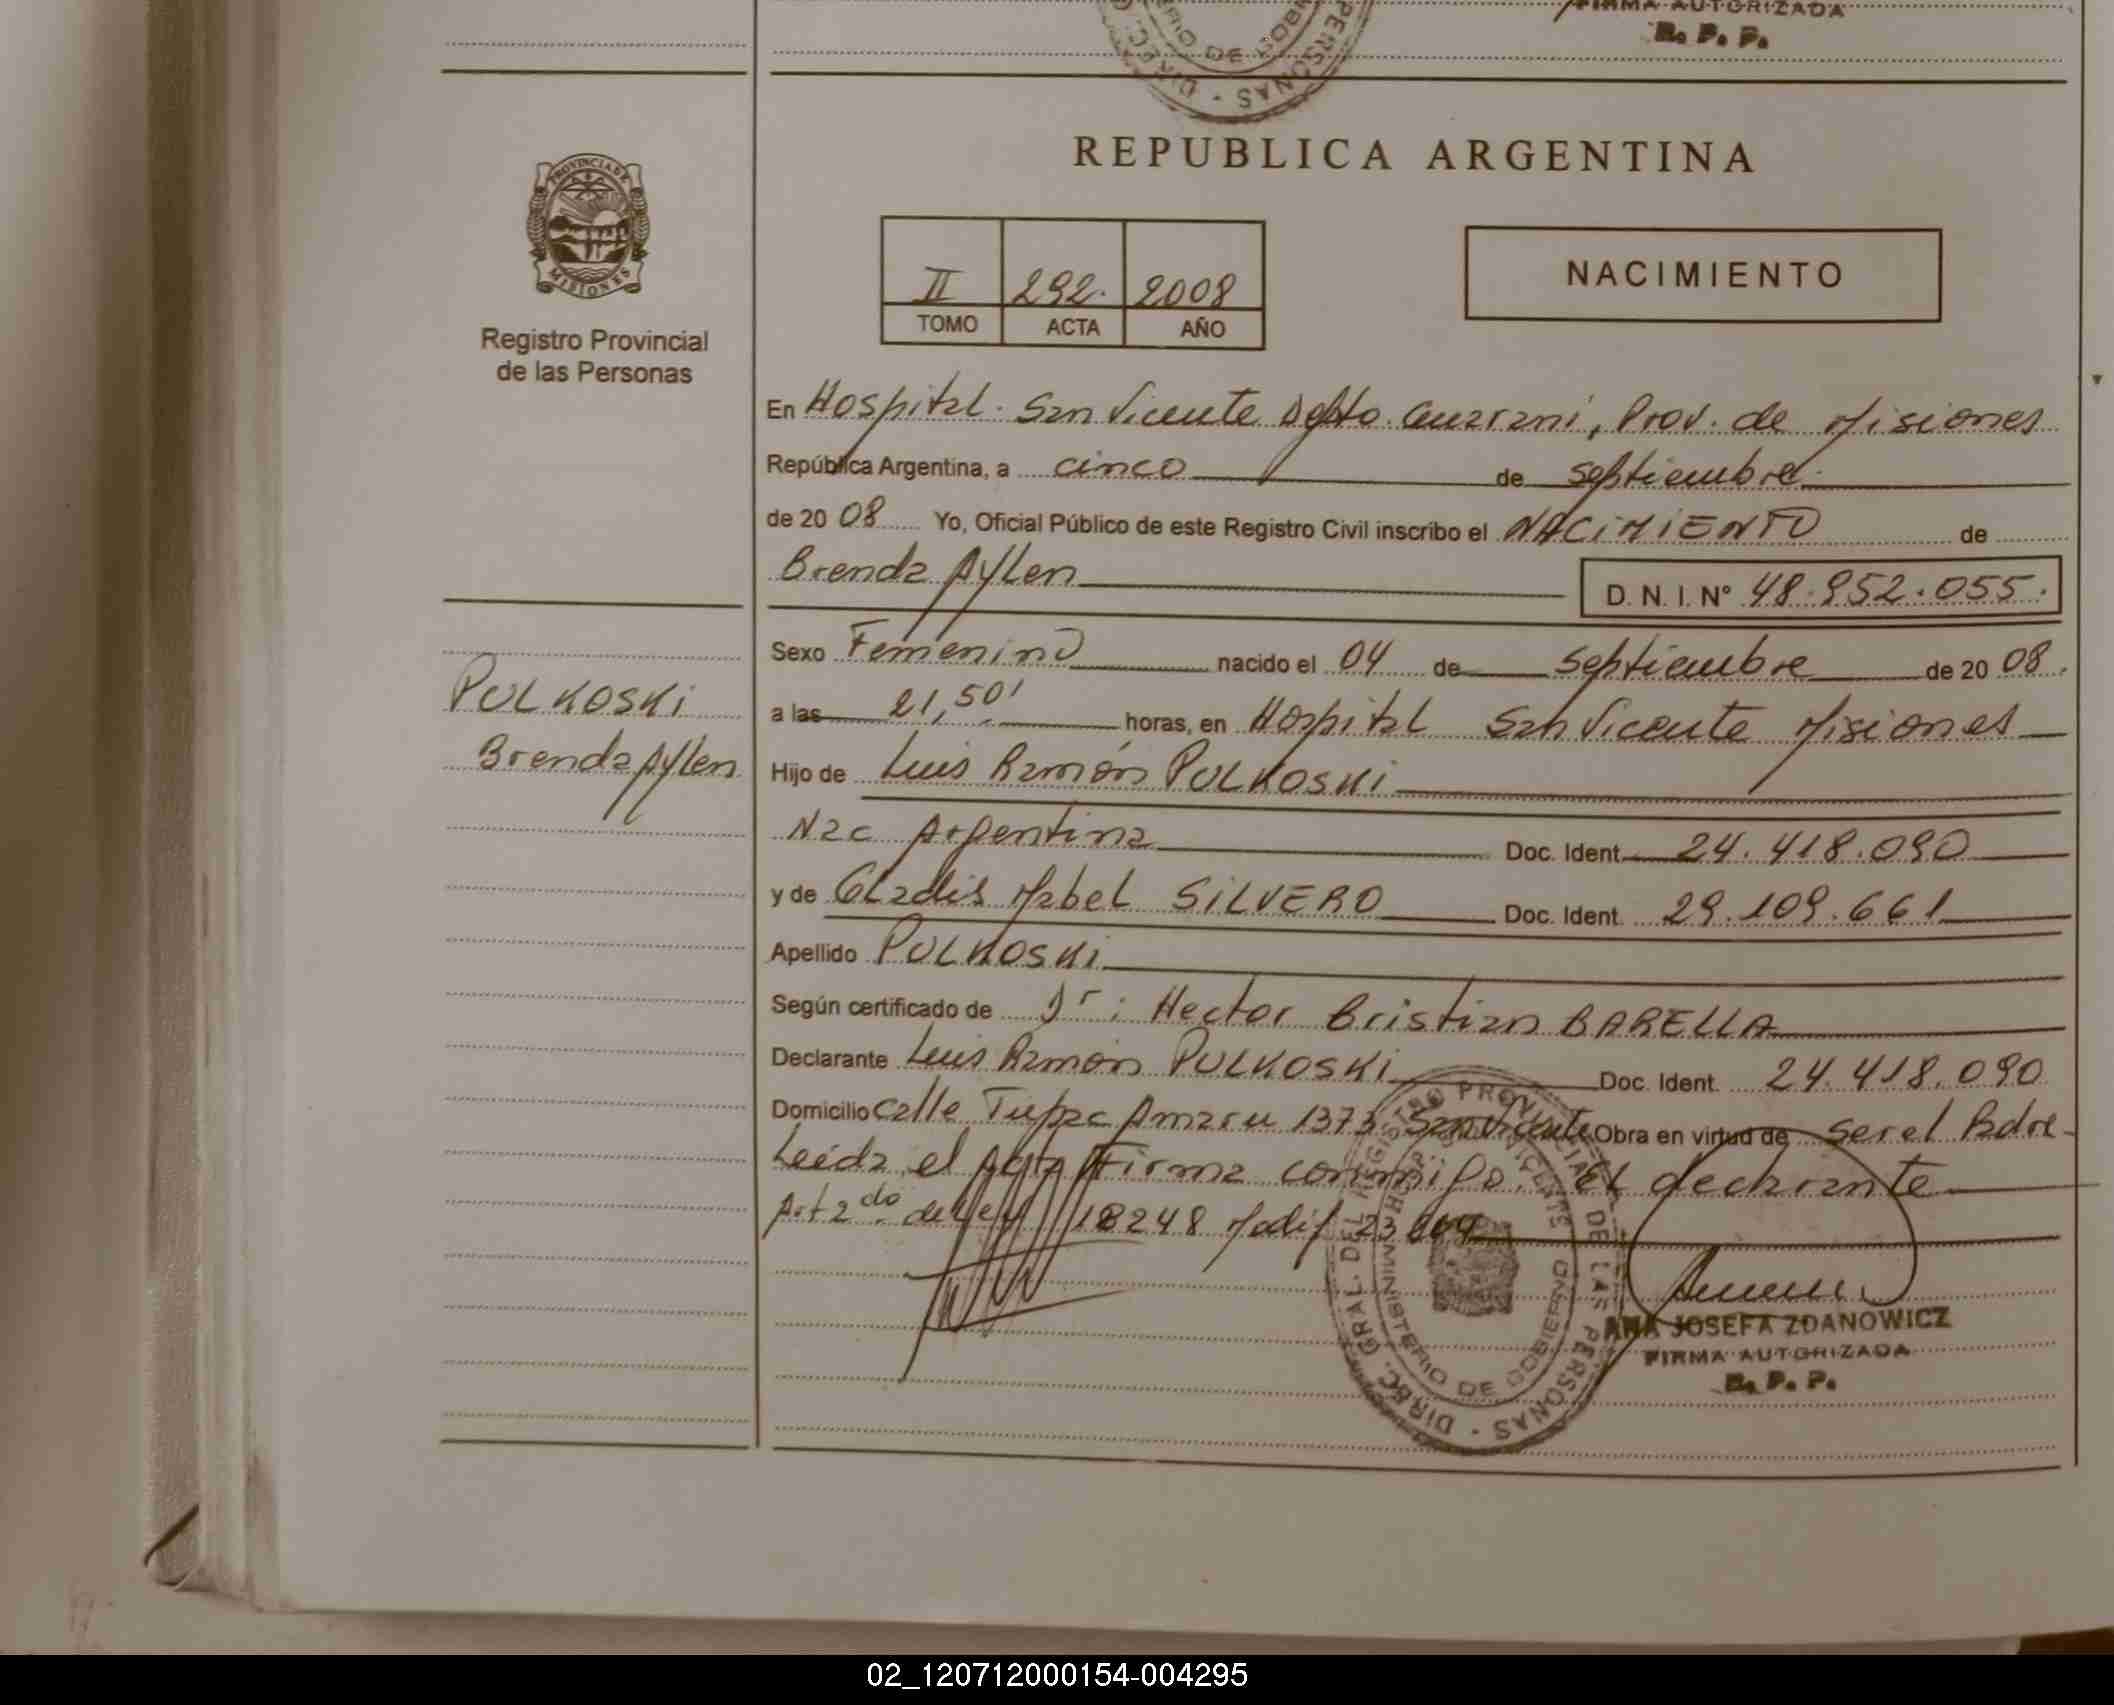 FIRMA AUTORIZADA
R. P. P.
REPUBLICA ARGENTINA
PROVINCIA DE
MISIONES
Registro Provincial
de las Personas
II 292. 2008
TOMO ACTA AÑO
NACIMIENTO
En Hospital. San Vicente Dpto. Guarani, Prov. de Misiones
República Argentina, a cinco de septiembre
de 20 08 Yo, Oficial Público de este Registro Civil inscribo el NACIMIENTO de
Brenda Aylen D. N. I. N° 48.952.055.
Sexo Femenino nacido el 04 de Septiembre de 20 08.
PULKOSKI
Brenda Aylen
a las 21,50' horas, en Hospital San Vicente Misiones
Hijo de Luis Ramón PULKOSKI
Nac Argentina Doc. Ident. 24.418.090
y de Gladis Mabel SILVERO Doc. Ident. 29.109.661
Apellido PULKOSKI
Según certificado de Dr: Hector Cristian BARELLA
Declarante Luis Ramón PULKOSKI Doc. Ident. 24.418.090
Domicilio Calle Tupac Amaru 1373 San Vicente Obra en virtud de ser el Padre
Leida el Acta Firma conmigo. El declarante
Art 2do de Ley 18248 Modif
DIREC. GRAL. DEL REGISTRO PROVINCIAL DE LAS PERSONAS
MINISTERIO DE GOBIERNO
ANA JOSEFA ZDANOWICZ
FIRMA AUTORIZADA
R. P. P.
02_120712000154-004295